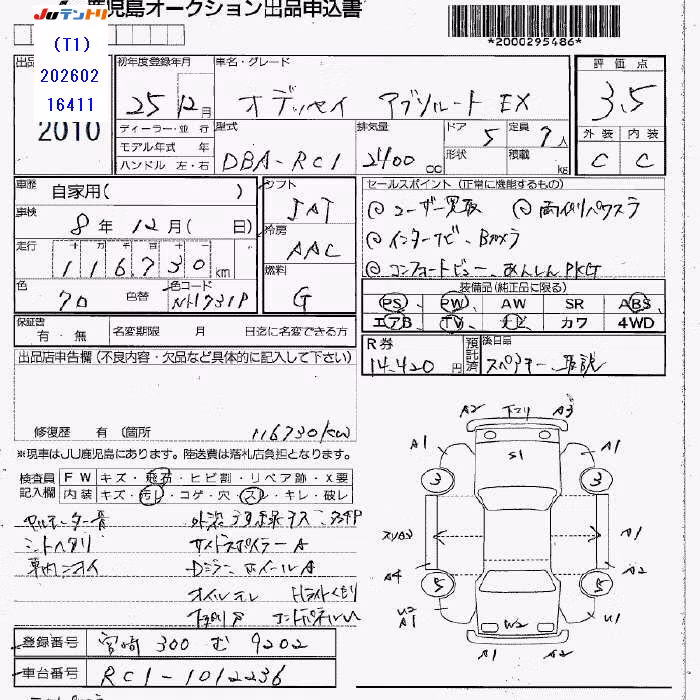 JUテントリ
鹿児島オークション出品申込書
(T1)
202602
16411
2010
*2000295486*
出品
初年度登録年月
25 12月
車名・グレード
オデッセイ アブソルート EX
評価点
3.5
外装 内装
C C
ディーラー・並行
モデル年式 年
ハンドル 左・右
型式
DBA-RC1
排気量
2400 cc
ドア 5
形状
定員 7人
積載 kg
車歴
自家用( )
車検
8年 12月( 日)
走行
十万 万 千 百 十 一
116730 km
色
クロ
色替
色コード
NH731P
シフト
IAT
冷房
AAC
燃料
G
セールスポイント(正常に機能するもの)
◎ユーザー買取 ◎両側パワスラ
◎インターナビ、Bカメラ
◎コンフォートビュー、あんしんPKG
装備品(純正品に限る)
PS PW AW SR ABS
エアB TV ナビ カワ 4WD
保証書
有・無
名変期限 月 日迄に名変できる方
R券
14,420円
預託済
後日品
スペアキー、取説
出品店申告欄(不良内容・欠品など具体的に記入して下さい)
修復歴 有(箇所 116730km
※現車はJU鹿児島にあります。陸送費は落札店負担となります。
検査員記入欄
FW キズ・飛石・ヒビ割・リペア跡・X要
内装 キズ・汚レ・コゲ・穴・スレ・キレ・破レ
セルモーター音
シートヘタリ
車内ニオイ
サイドスポイラーA
Dミラー、ホイールA
オイルモレ Hライトくもり
A2 下マワリ A3
A1 S1 A1
3 3
A1
A4 A2
5 5
U2 A1 W2 U1
A1 A2
登録番号 宮崎 300 む 9202
車台番号 RC1-1012236